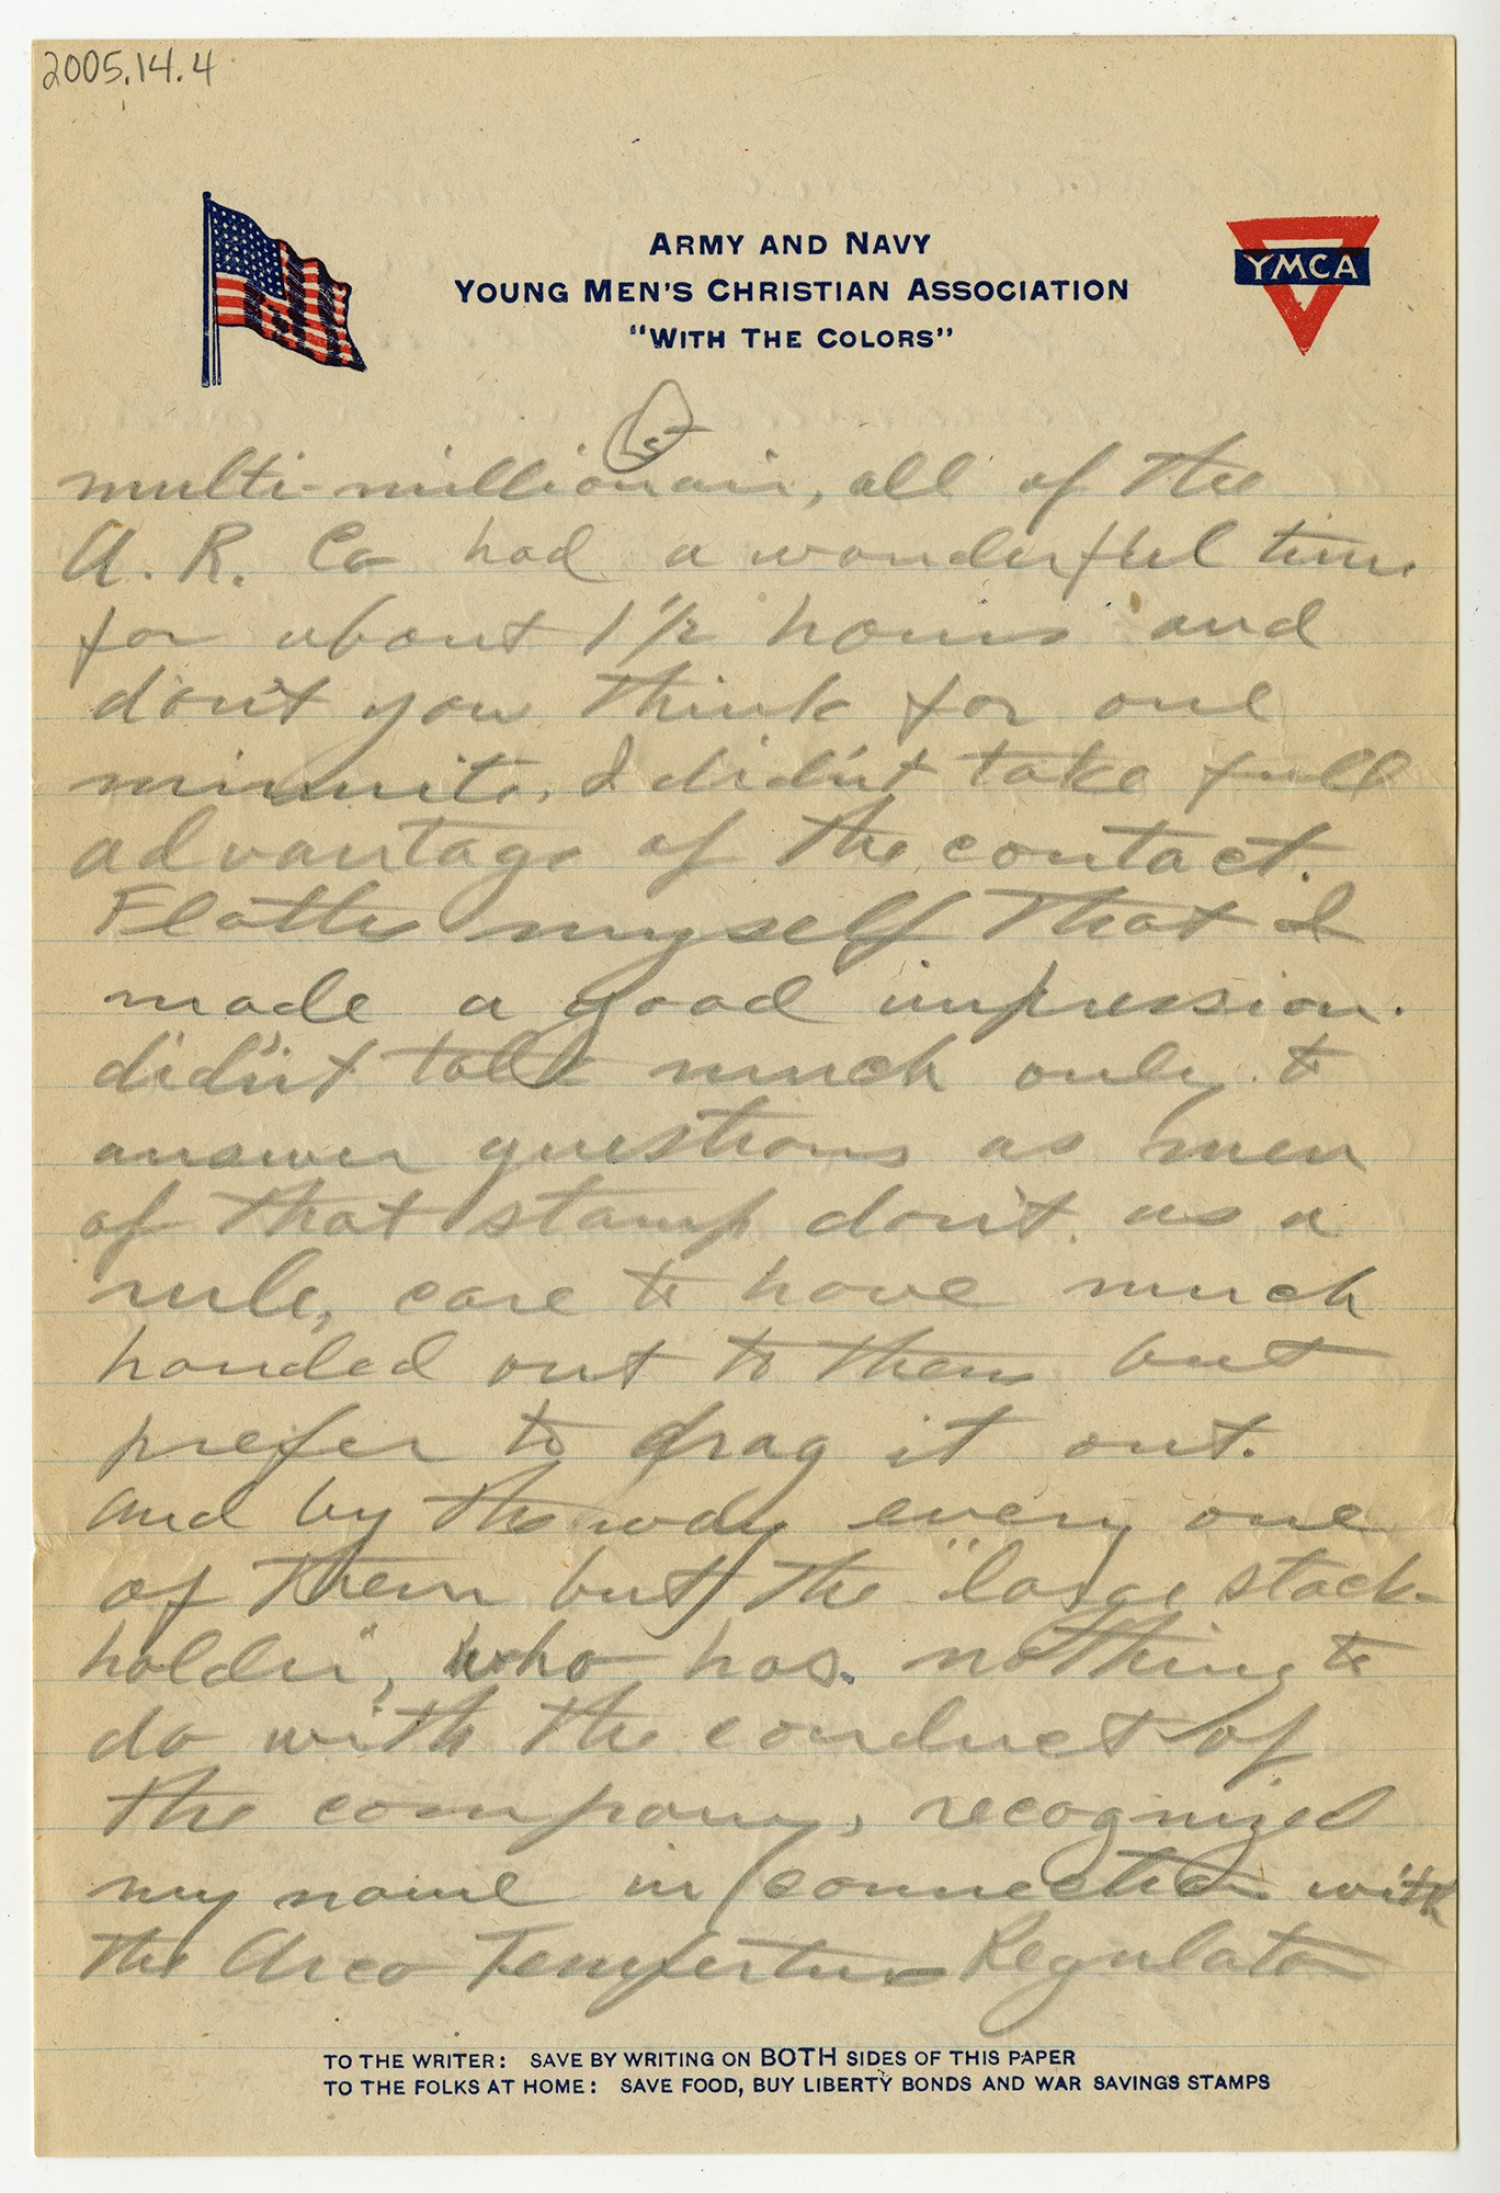 2005.14.4
ARMY AND NAVY
YOUNG MEN'S CHRISTIAN ASSOCIATION
"WITH THE COLORS"
YMCA
5
multi-millionair, all of the
A. R. Co had a wonderful time
for about 1 1/2 hours and
don't you think for one
minnite, I didn't take full
advantage of the contact.
Flatter myself that I
made a good impression.
didn't talk much only to
answer questions as men
of that stamp don't, as a
rule, care to have much
handed out to them but
prefer to drag it out.
and by the way every one
of them but the "large stock-
holder", who has nothing to
do with the conduct of
the company, recognized
my name in connection with
the Arco Tempertur Regulator
TO THE WRITER: SAVE BY WRITING ON BOTH SIDES OF THIS PAPER
TO THE FOLKS AT HOME: SAVE FOOD, BUY LIBERTY BONDS AND WAR SAVINGS STAMPS